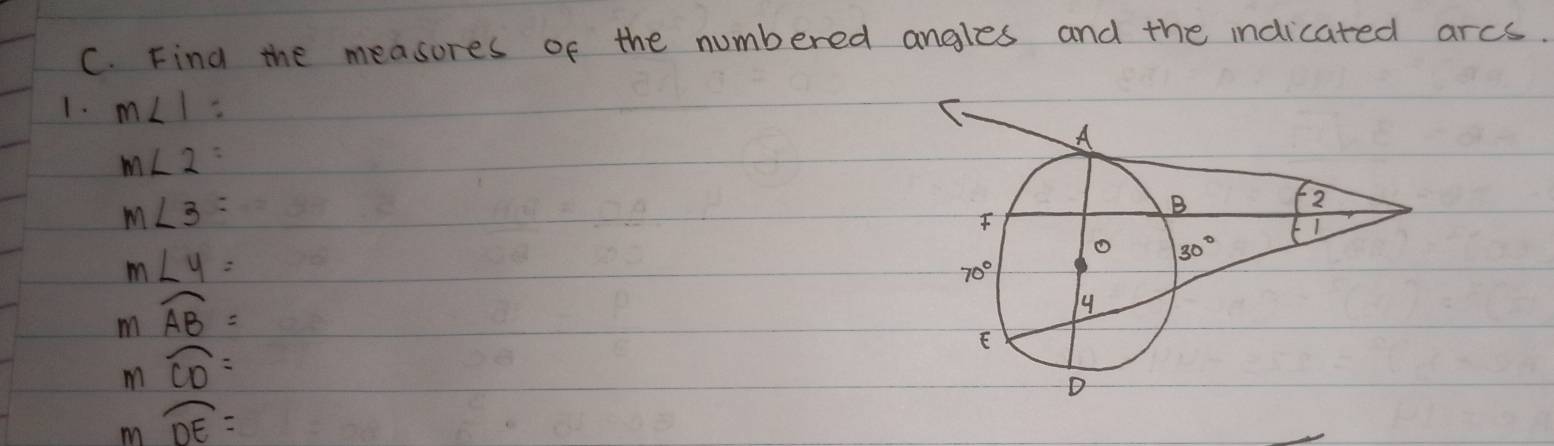 C. Find the measures of the numbered angles and the indicated arcs.
1. m∠1 =
m∠2 =
m∠3 =
m∠4 =
m AB =
m CD =
m DE =
A
2
B
F
1
O
30°
70°
4
E
D